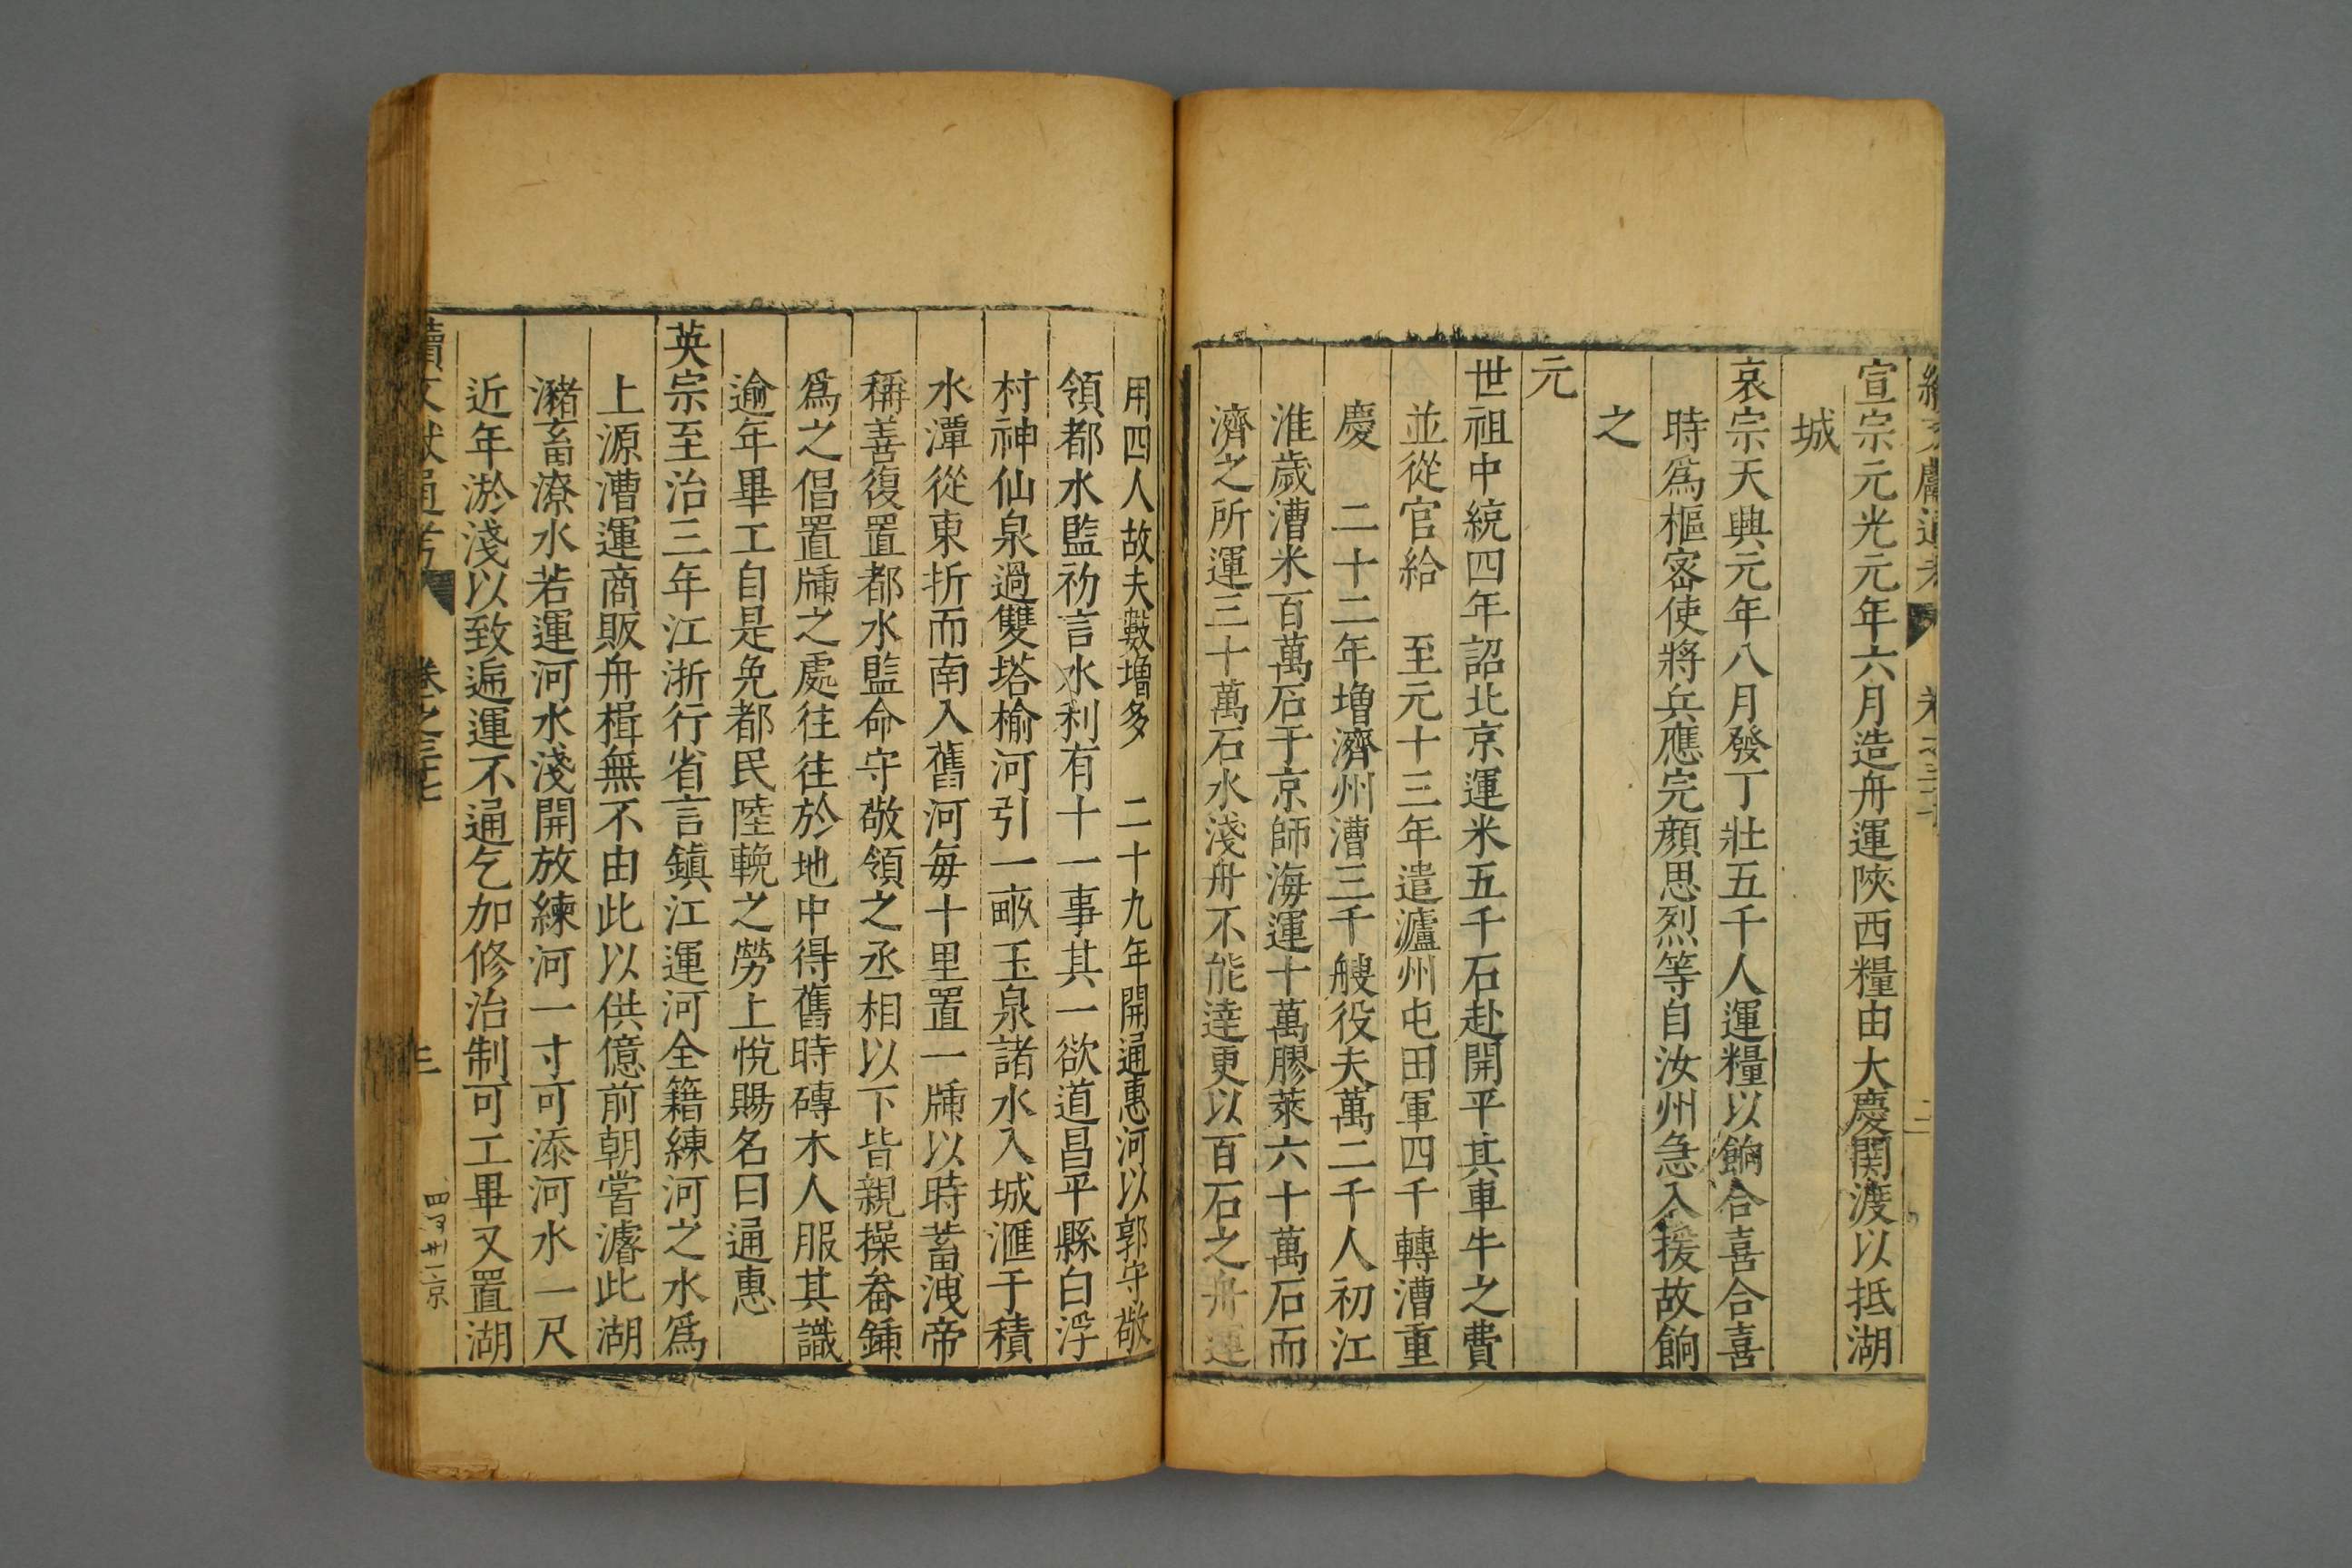 宣宗元光元年六月造舟運陝西糧由大慶関渡以抵湖
城
哀宗天興元年八月發丁壯五千人運糧以餉合喜合喜
時爲樞宻使將兵應完顔思烈等自汝州急入援故餉
之
元
世祖中統四年詔北京運米五千石赴開平其車牛之費
並從官給 至元十三年遣瀘州屯田軍四千轉漕重
慶 二十二年增濟州漕三千艘役夫萬二千人初江
淮歲漕米百萬石于京師海運十萬膠萊六十萬石而
濟之所運三十萬石水淺舟不能達更以百石之舟運
用四人故夫數增多 二十九年開通惠河以郭守敬
領都水監初言水利有十一事其一欲道昌平縣白浮
村神仙泉過雙塔榆河引一畝玉泉諸水入城滙于積
水潭從東折而南入舊河每十里置一牐以時蓄洩帝
稱善復置都水監命守敬領之丞相以下皆親操畚鍤
爲之倡置牐之處往往於地中得舊時磚木人服其識
逾年畢工自是免都民陸輓之勞上悅賜名曰通惠
英宗至治三年江浙行省言鎮江運河全籍練河之水爲
上源漕運商販舟楫無不由此以供億前朝嘗濬此湖
瀦畜潦水若運河水淺開放練河一寸可添河水一尺
近年淤淺以致遍運不通乞加修治制可工畢又置湖
續文獻通考 卷之三十七 三